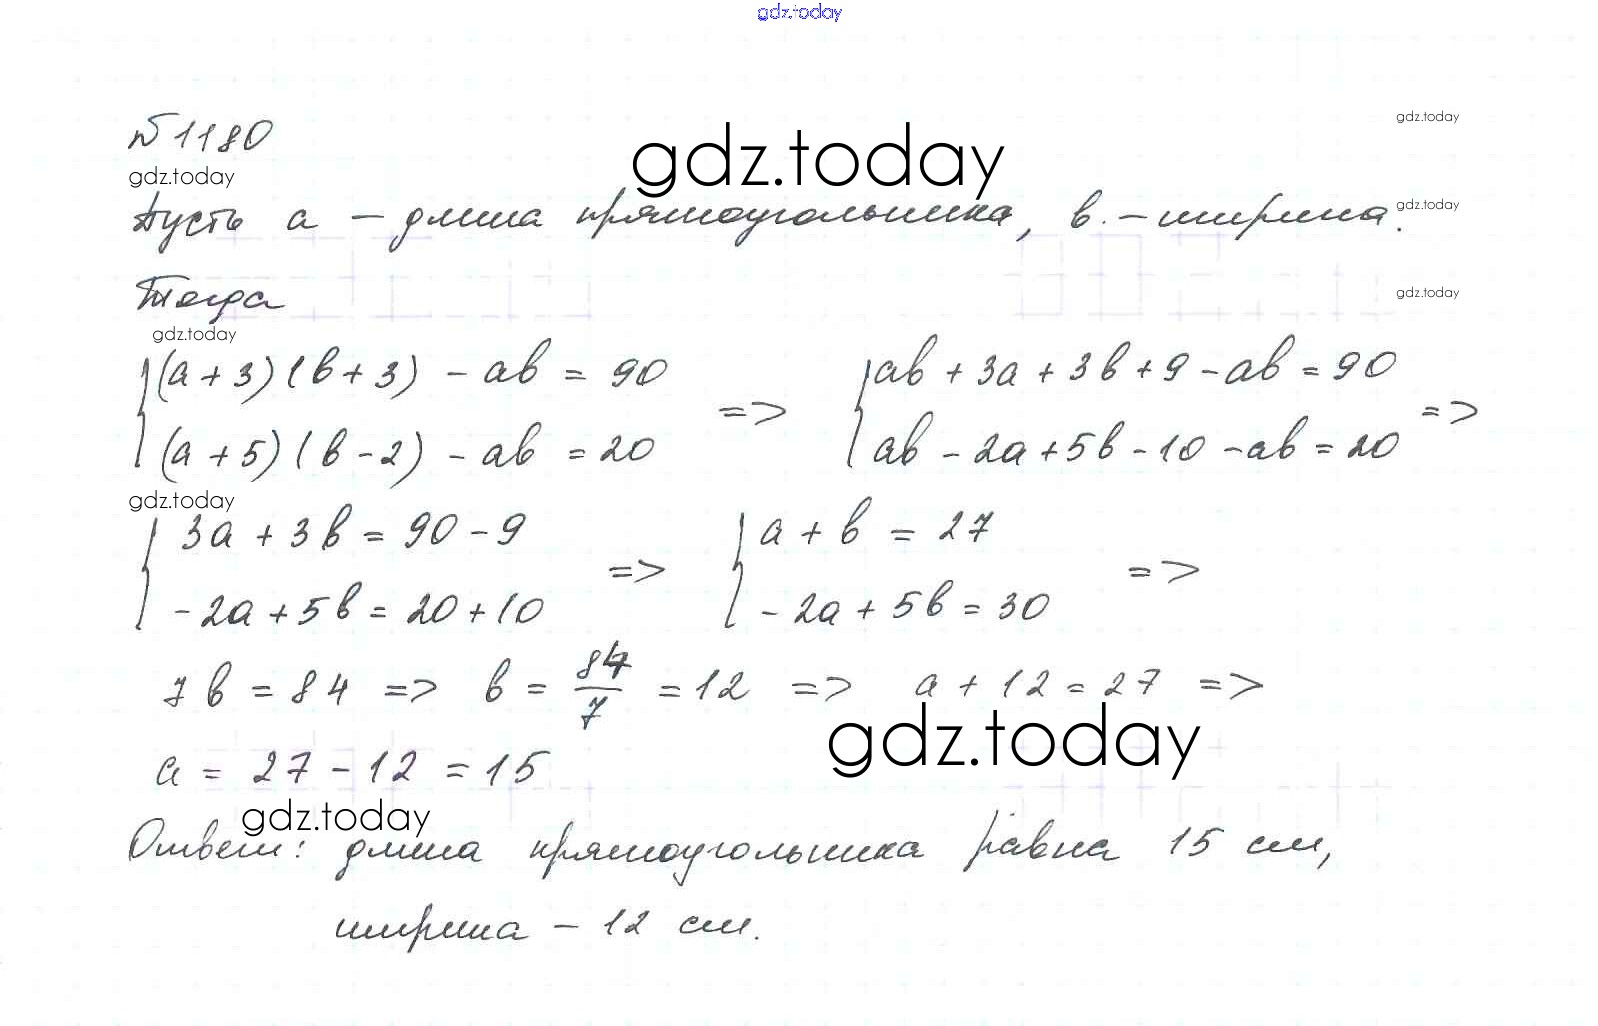 gdz.today
№ 1180
gdz.today
gdz.today
gdz.today
Пусть a – длина прямоугольника, b – ширина.
gdz.today
Тогда
gdz.today
gdz.today
{(a + 3)(b + 3) – ab = 90 => {ab + 3a + 3b + 9 – ab = 90 =>
(a + 5)(b – 2) – ab = 20 ab – 2a + 5b – 10 – ab = 20
gdz.today
{3a + 3b = 90 – 9 => {a + b = 27 =>
–2a + 5b = 20 + 10 –2a + 5b = 30
7b = 84 => b = 84/7 = 12 => a + 12 = 27 =>
gdz.today
a = 27 – 12 = 15
gdz.today
Ответ: длина прямоугольника равна 15 см,
ширина – 12 см.